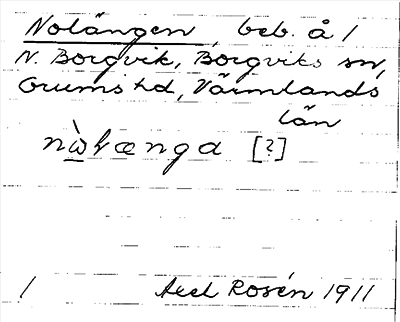 Nolängen, beb. å /
N. Borgvik, Borgviks sn,
Grums hd, Värmlands
län
nωlænga [?]
/ Axel Rosén 1911